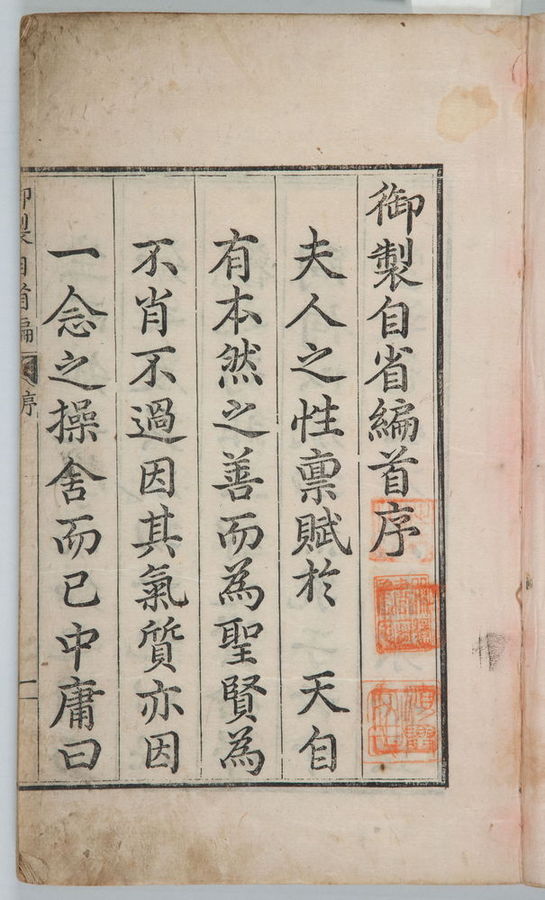 御製自省編首序
夫人之性稟賦於 天自
有本然之善而為聖賢為
不肖不過因其氣質亦因
一念之操舍而已中庸曰
御製自省編 序
一